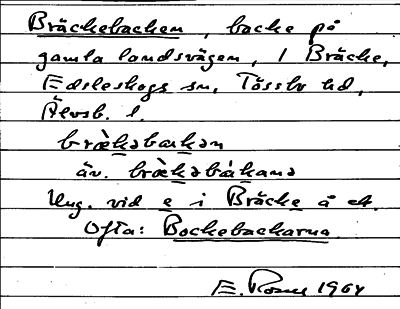 Bräckebacken, backe på
gamla landsvägen, i Bräcke,
Edsleskogs sn, Tössbo hd,
Älvsb. l.
bræ̀kəbakən
äv. bræ̀kəbákana
Ung. vid e i Bräcke å
Ofta: Bockebackarna
E. 1964